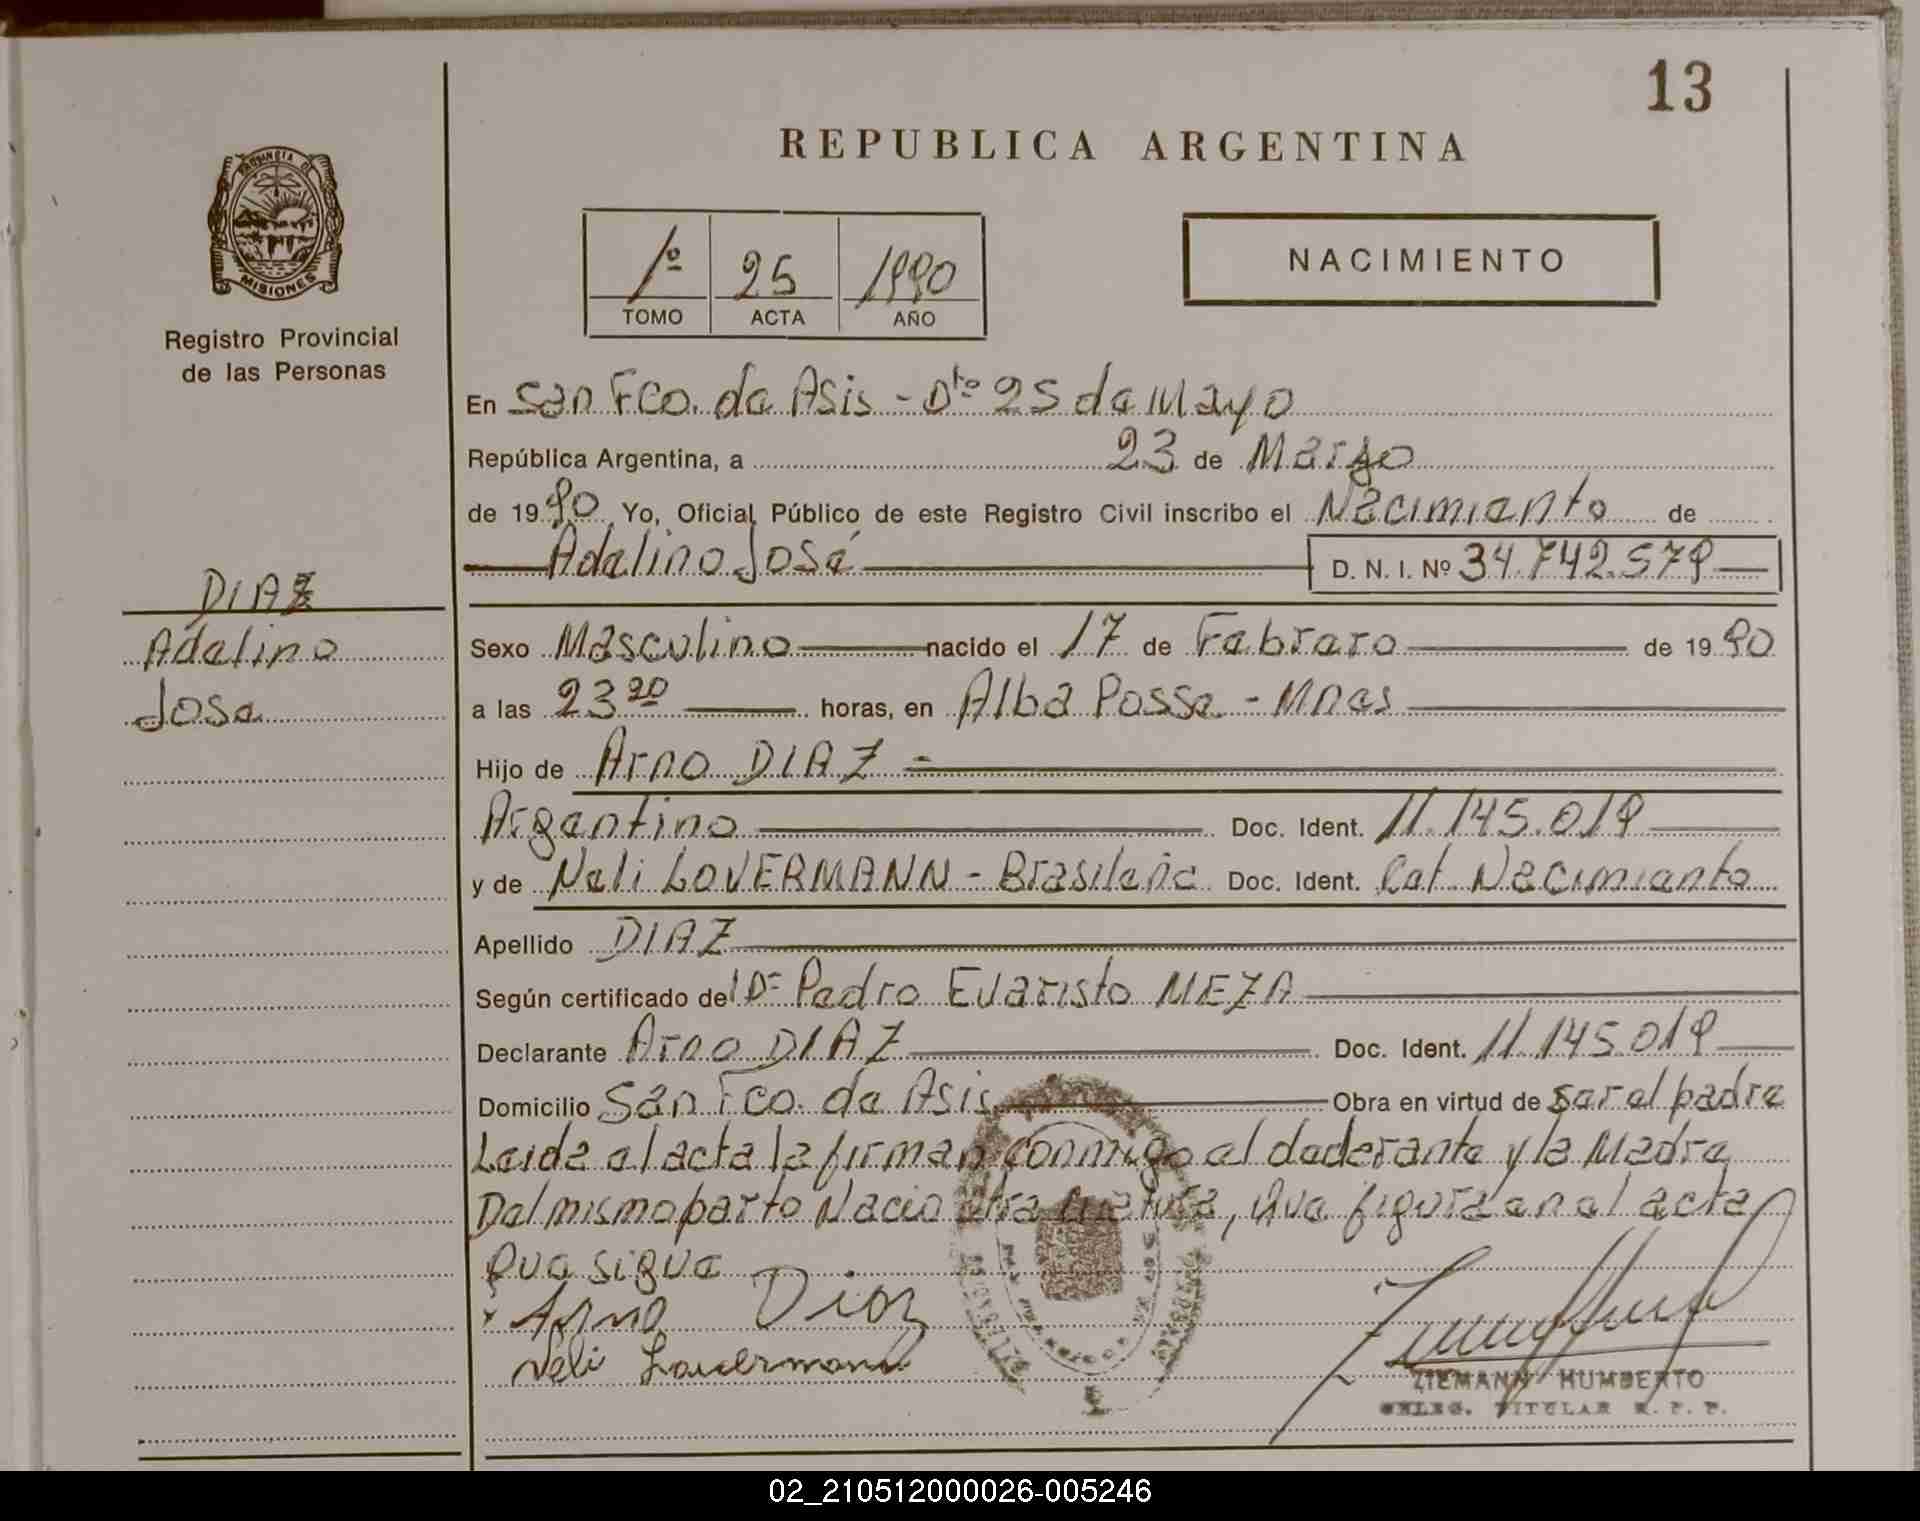 13
REPUBLICA ARGENTINA
PROVINCIA DE
MISIONES
Registro Provincial
de las Personas
1º 25 1990
TOMO ACTA AÑO
NACIMIENTO
En San Fco. de Asis - Dto 25 de Mayo
República Argentina, a 23 de Marzo
de 1990 Yo, Oficial Público de este Registro Civil inscribo el Nacimiento de
Adelino José D. N. I. Nº 34.742.579
DIAZ
Adelino
Jose
Sexo Masculino nacido el 17 de Febrero de 1990
a las 23 20 horas, en Alba Posse - Mnes
Hijo de Arno DIAZ =
Argentino Doc. Ident. 11.145.019
y de Neli LOVERMANN - Brasileña Doc. Ident. Cet. Nacimiento
Apellido DIAZ
Según certificado del Dr Pedro Evaristo MEZA
Declarante Arno DIAZ Doc. Ident. 11.145.019
Domicilio San Fco. de Asis Obra en virtud de ser el padre
Leida el acta la firman conmigo el declerante y la Madre
Del mismo parto Nacio otra criatura, que figura en el acta
que sigue
Arno Diaz
Neli Lauermann
ZIEMANN HUMBERTO
DELEG. TITULAR R. P. P.
02_210512000026-005246